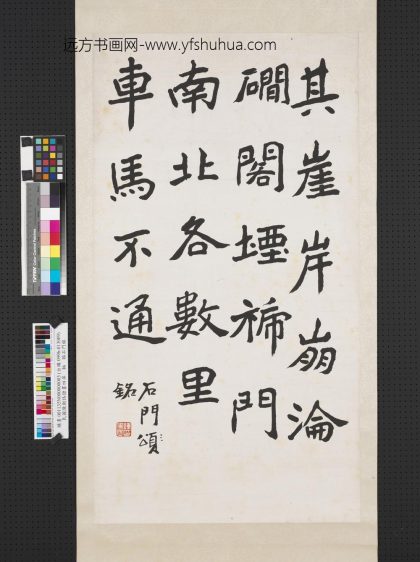 远方书画网-www.yfshuhua.com
其崖岸崩淪
磵閣堙門
南北各數里
車馬不通
石門頌
銘